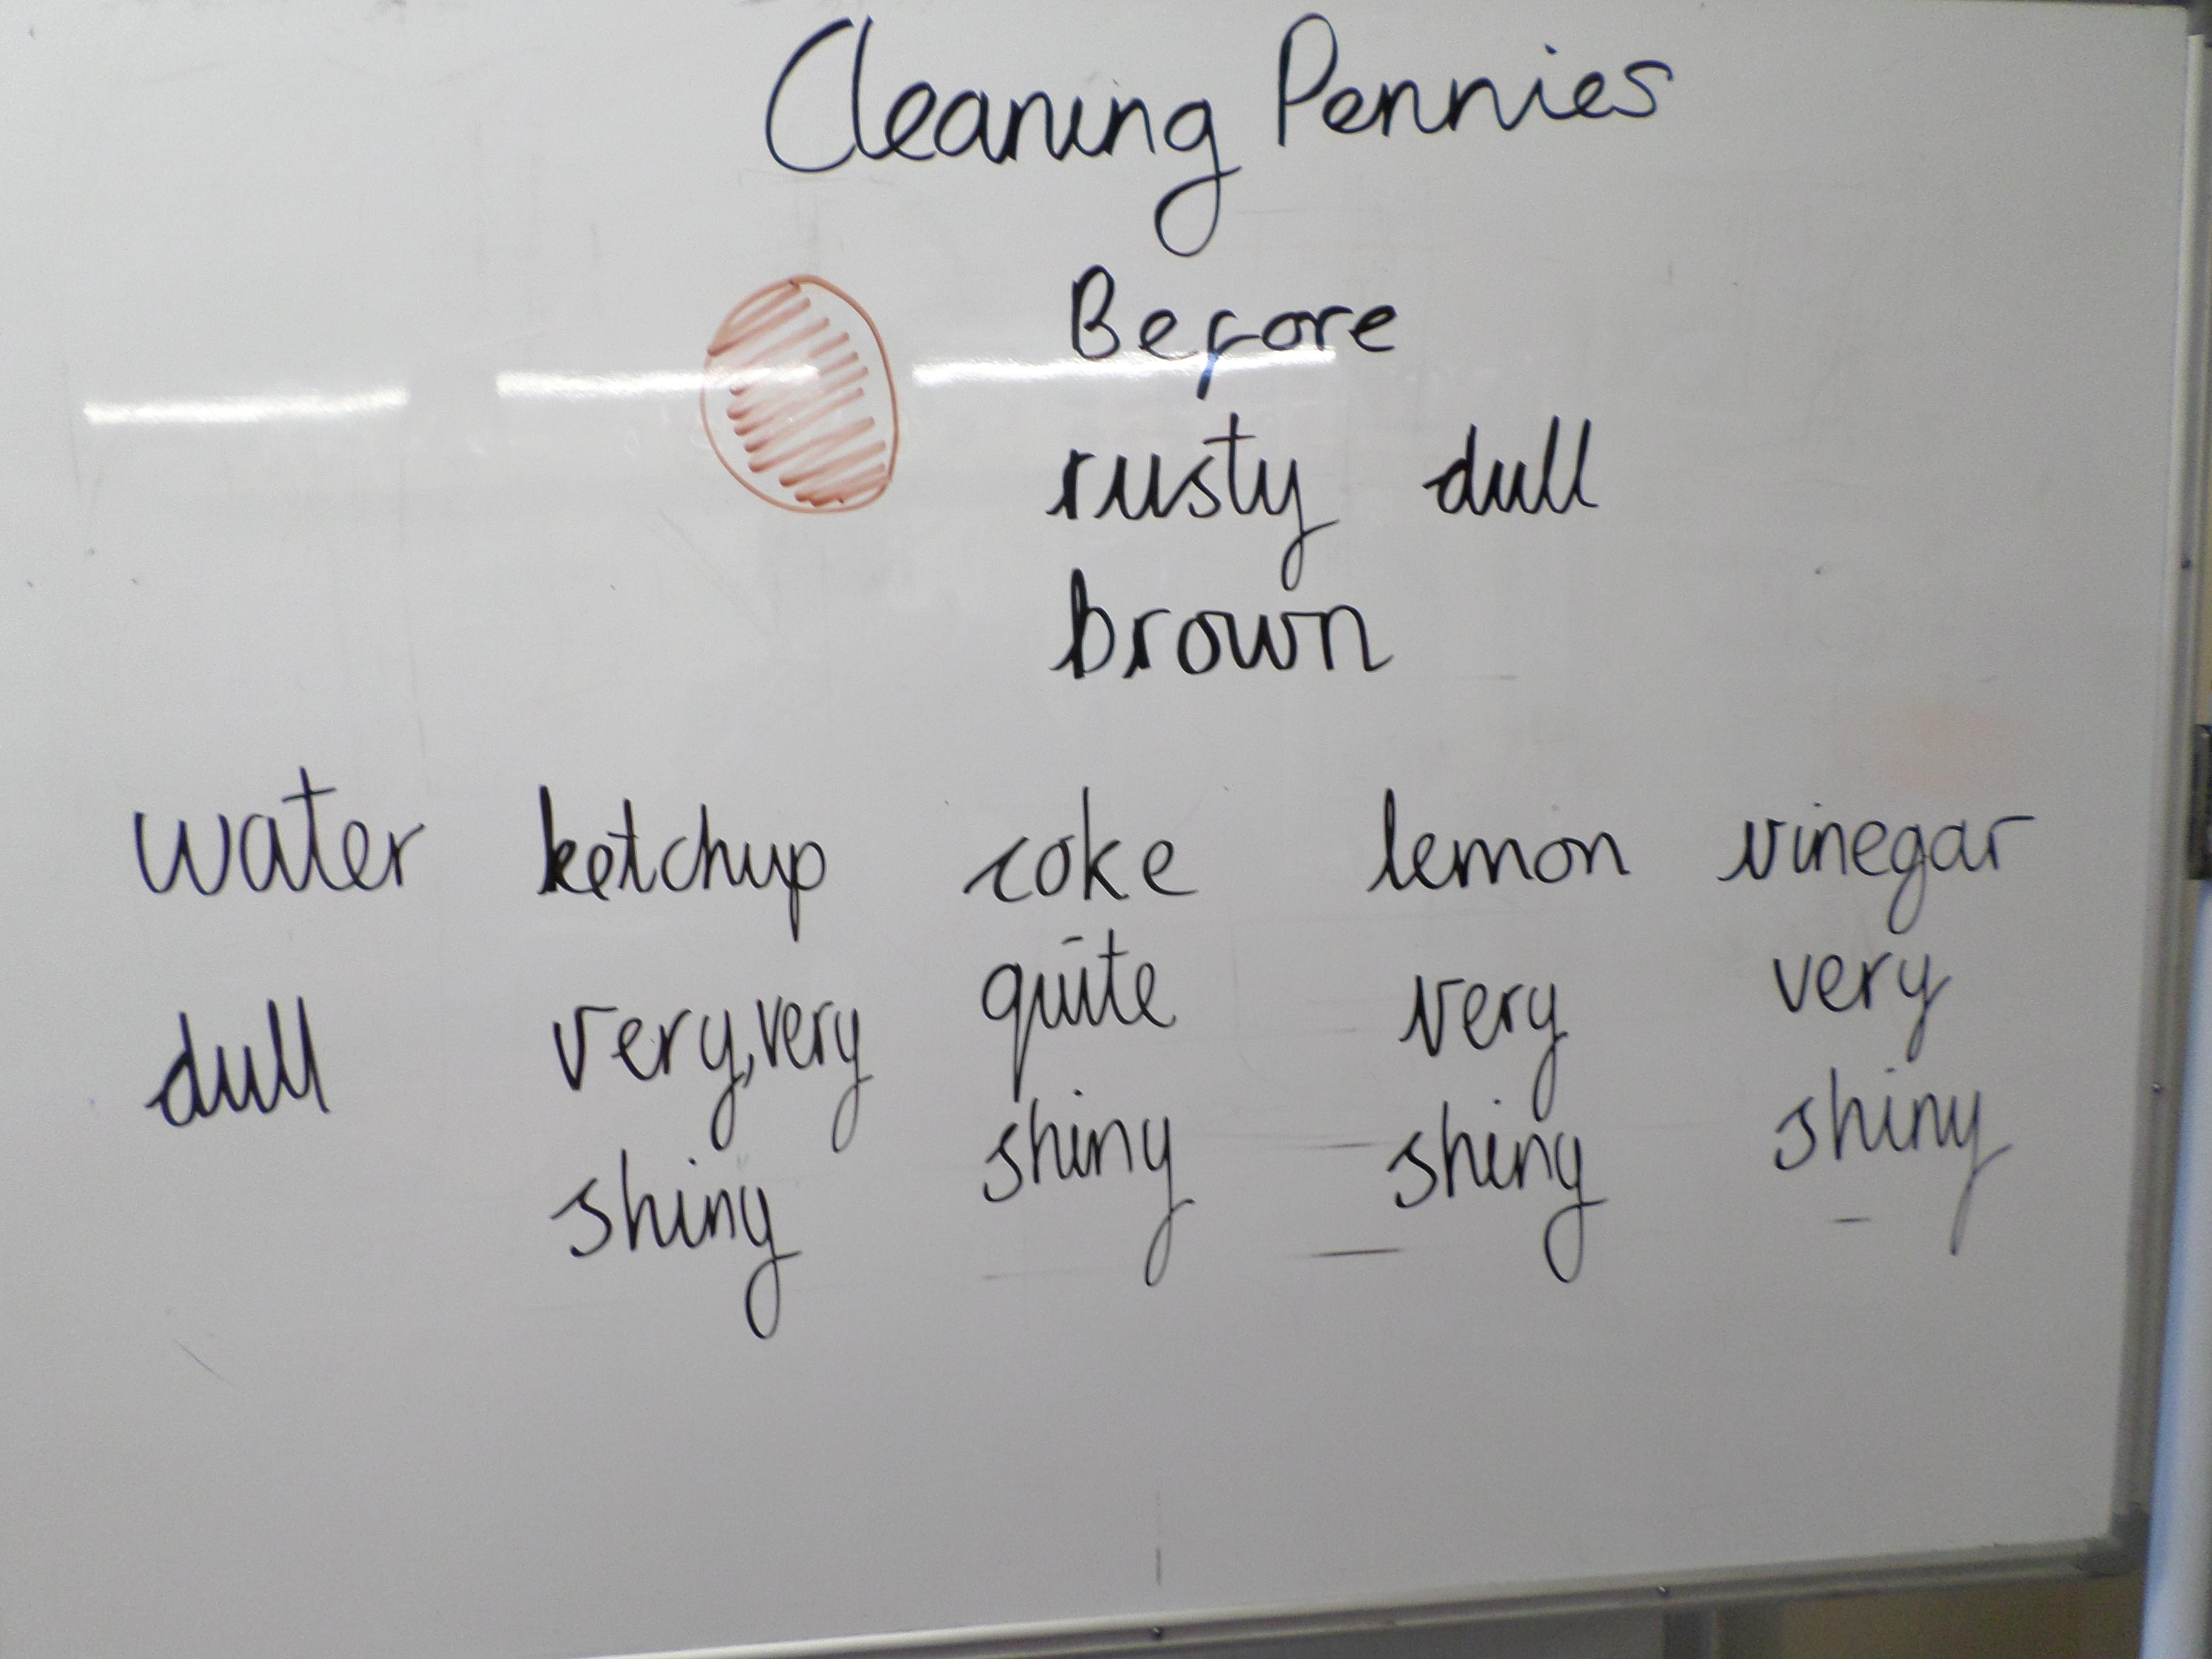 Cleaning Pennies
Before
rusty dull
brown
water ketchup coke lemon vinegar
dull very, very quite very very
shiny shiny shiny shiny